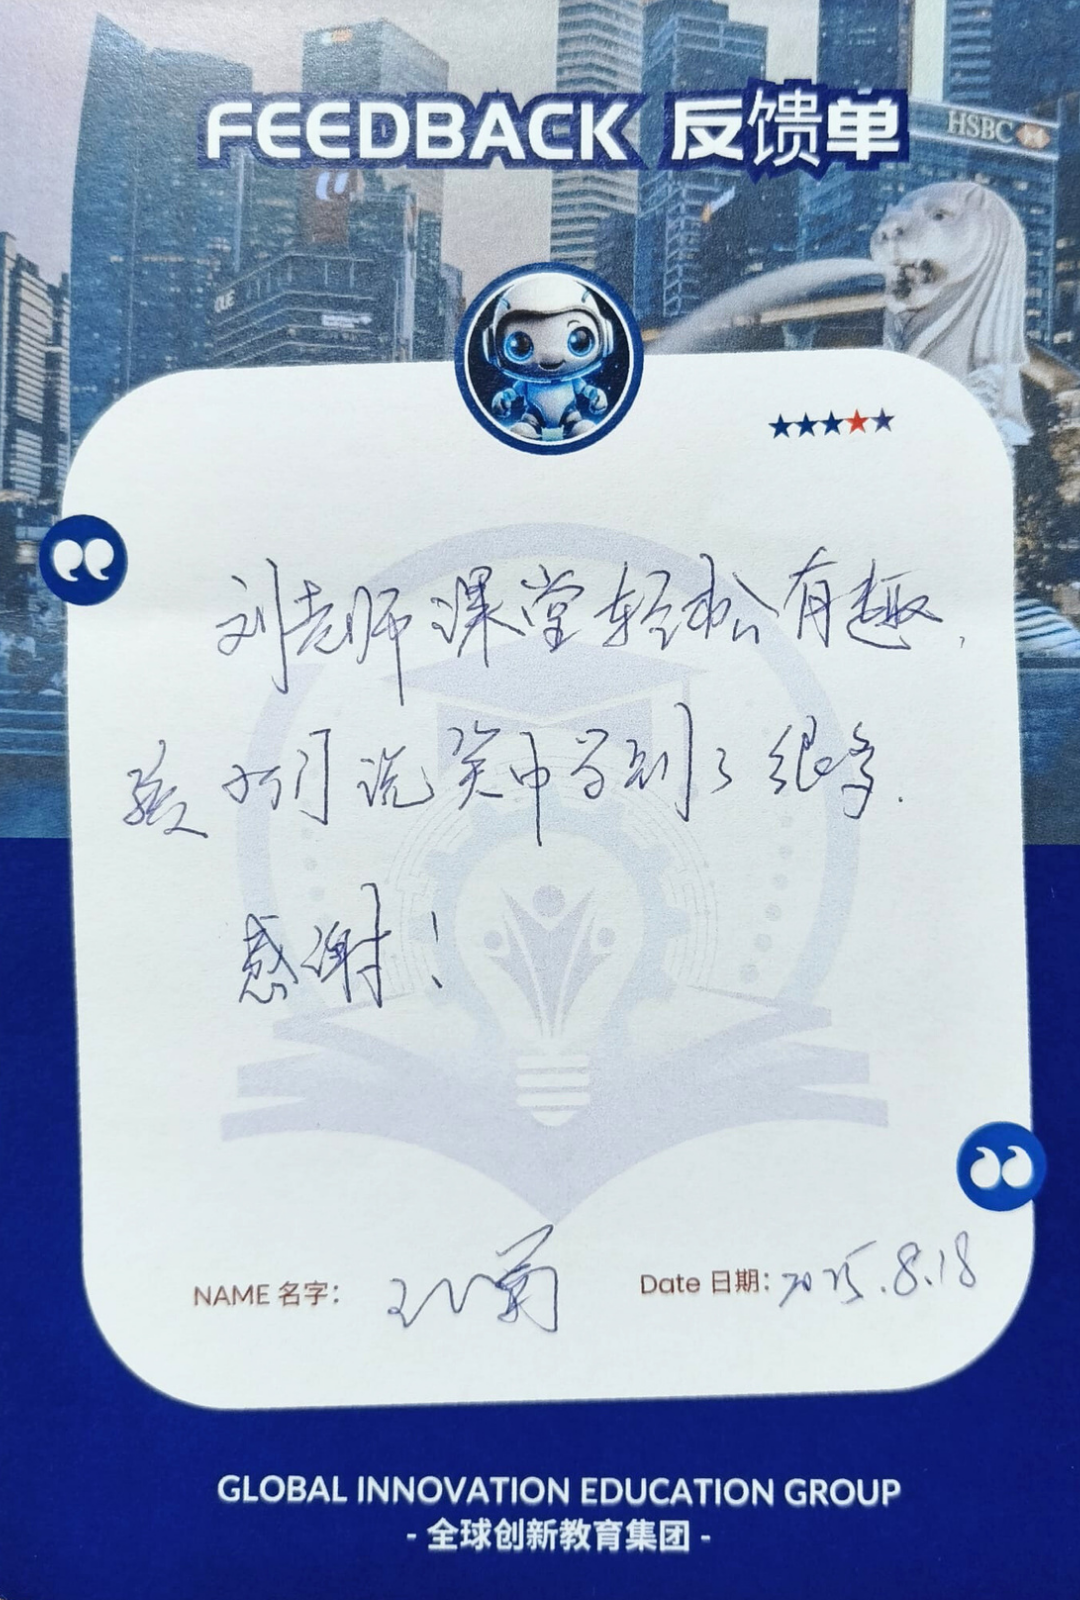 FEEDBACK 反馈单
HSBC
OUE
刘老师课堂轻松有趣，
孩子们说笑中学到了很多.
感谢！
NAME 名字：
Date 日期：2025.8.18
GLOBAL INNOVATION EDUCATION GROUP
- 全球创新教育集团 -